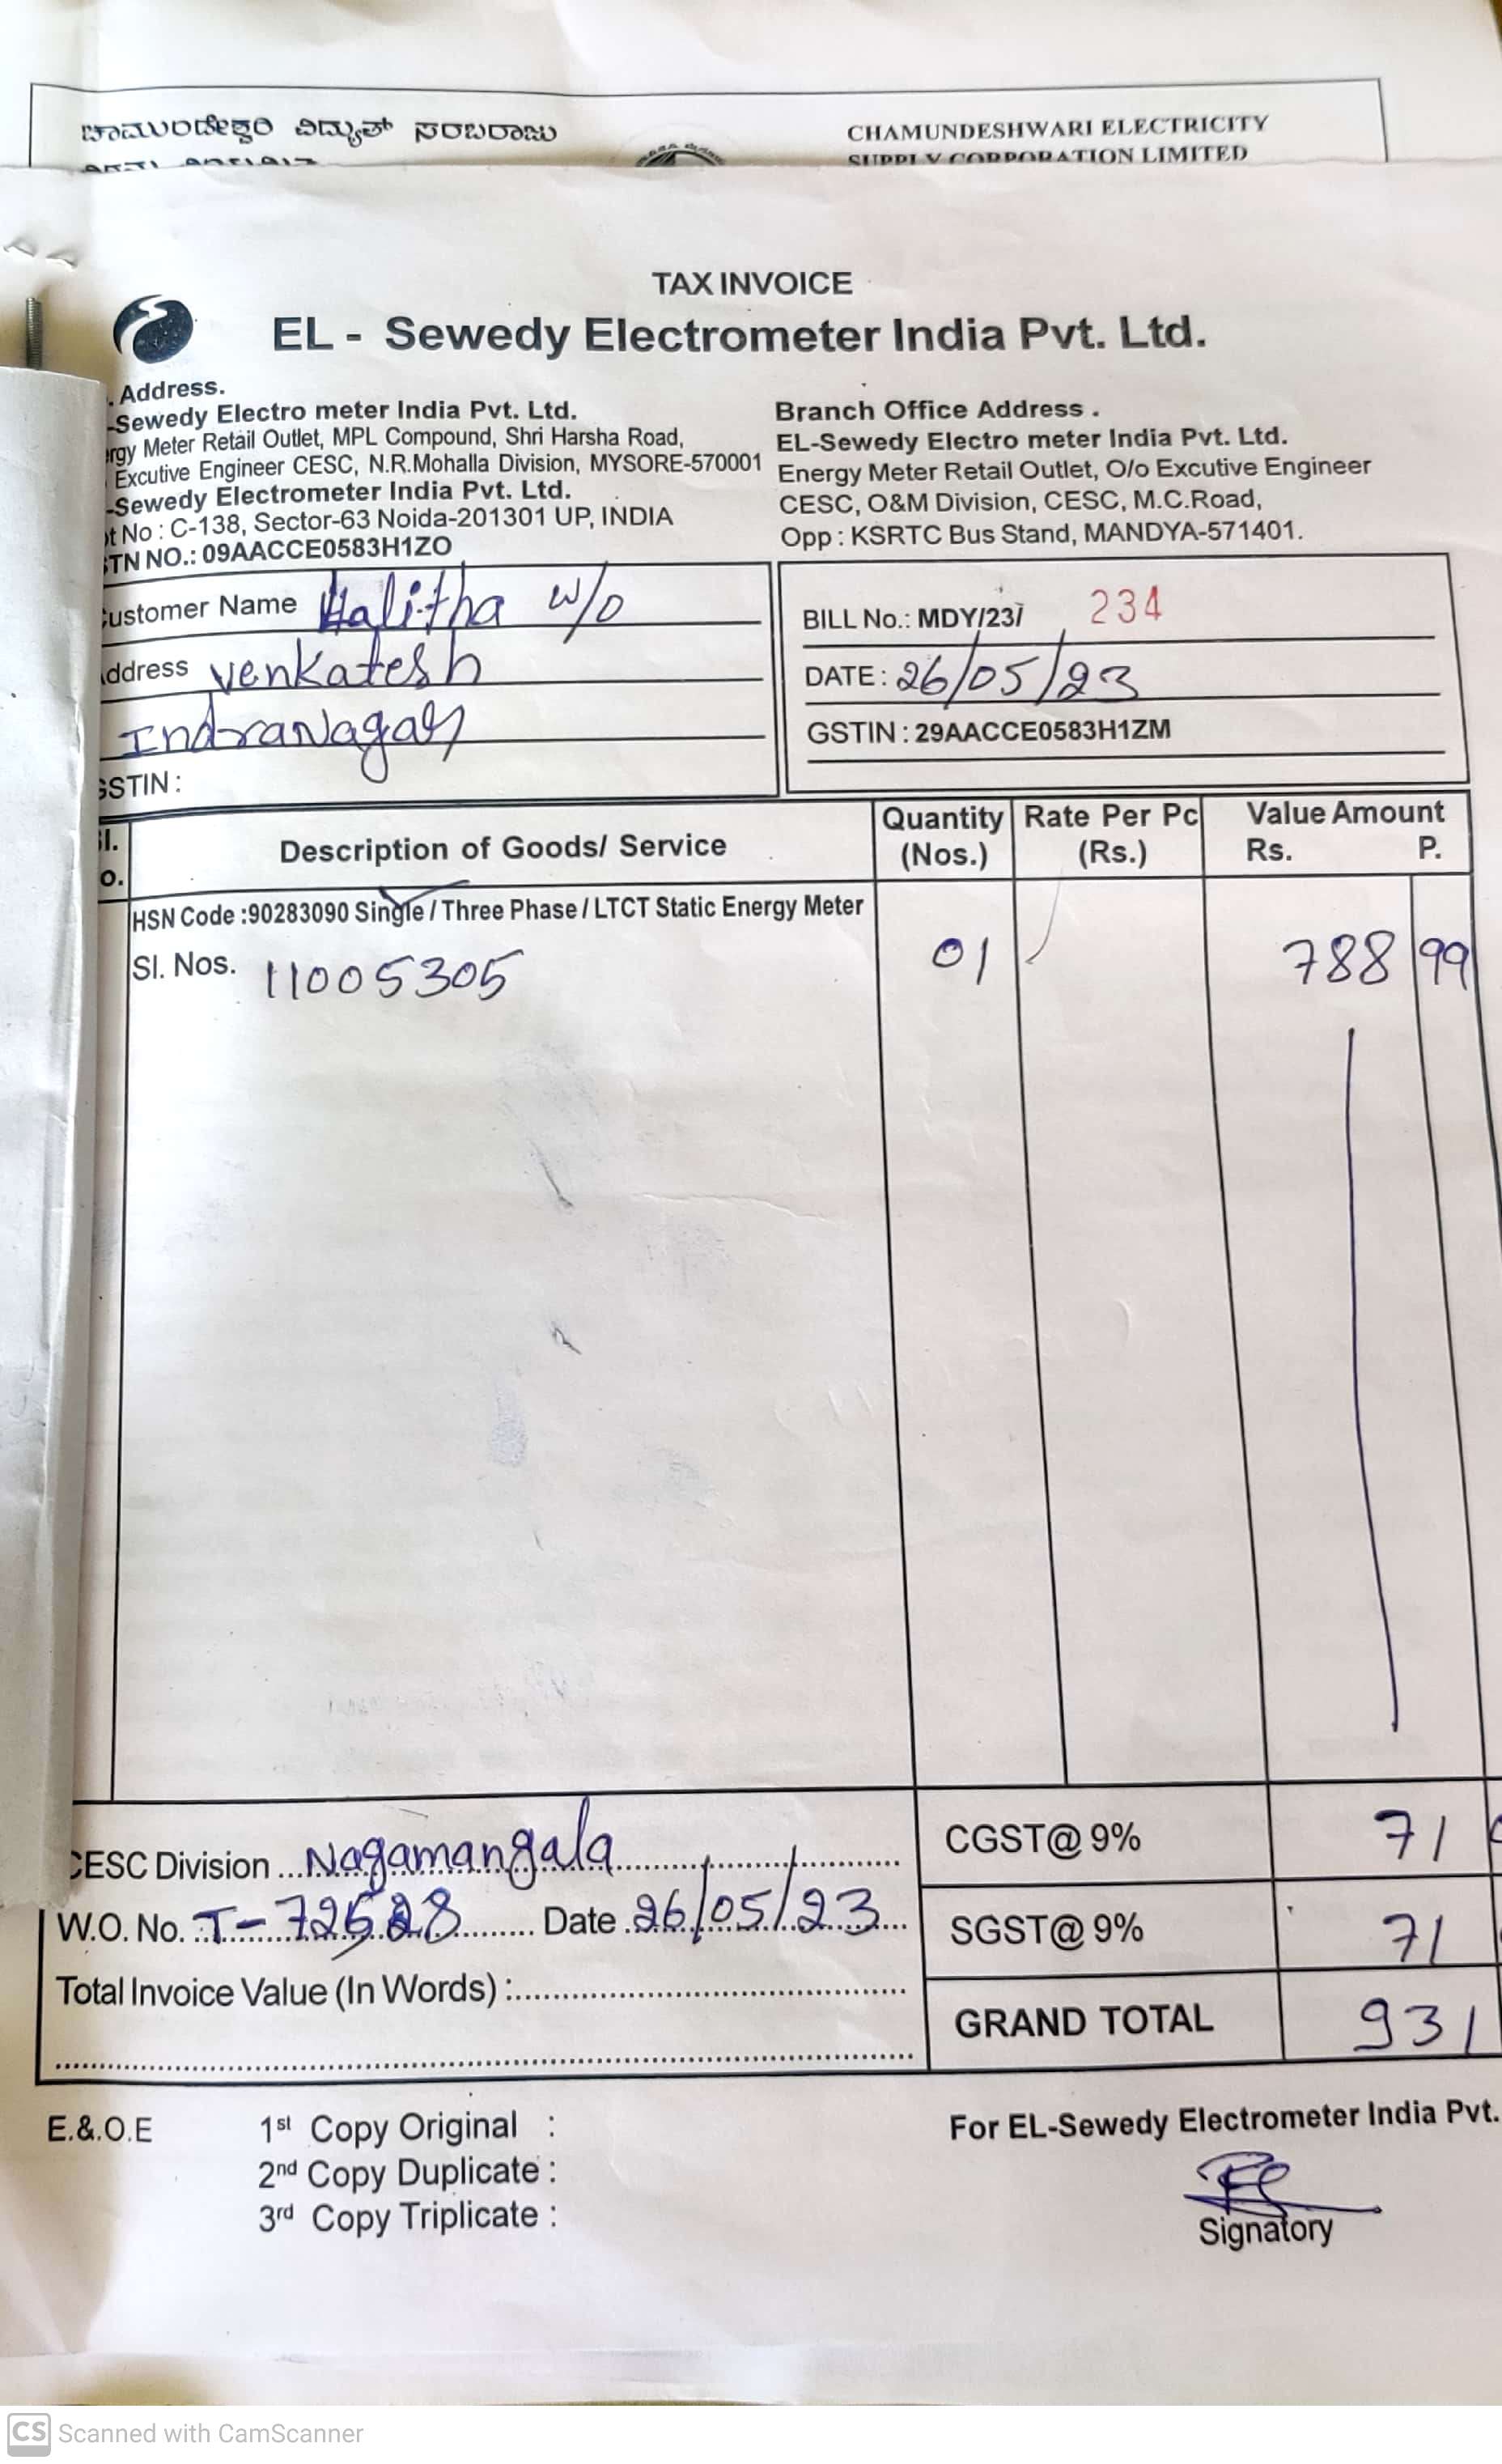 ಚಾಮುಂಡೇಶ್ವರಿ ವಿದ್ಯುತ್ ಸರಬರಾಜು
CHAMUNDESHWARI ELECTRICITY
SUPPLY CORPORATION LIMITED
TAX INVOICE
EL - Sewedy Electrometer India Pvt. Ltd.
. Address.
-Sewedy Electro meter India Pvt. Ltd.
rgy Meter Retail Outlet, MPL Compound, Shri Harsha Road,
Excutive Engineer CESC, N.R.Mohalla Division, MYSORE-570001
-Sewedy Electrometer India Pvt. Ltd.
t No : C-138, Sector-63 Noida-201301 UP, INDIA
TN NO.: 09AACCE0583H1ZO
Branch Office Address .
EL-Sewedy Electro meter India Pvt. Ltd.
Energy Meter Retail Outlet, O/o Excutive Engineer
CESC, O&M Division, CESC, M.C.Road,
Opp : KSRTC Bus Stand, MANDYA-571401.
ustomer Name Halitha w/o
ddress venkatesh
IndraNagar
GSTIN :
BILL No.: MDY/23/ 234
DATE : 26/05/23
GSTIN : 29AACCE0583H1ZM
Sl. o. Description of Goods/ Service Quantity (Nos.) Rate Per Pc (Rs.) Value Amount Rs. P.
HSN Code :90283090 Single / Three Phase / LTCT Static Energy Meter
Sl. Nos. 11005305 01 788 99
CESC Division ... Nagamangala
W.O. No. T-72528 Date 26/05/23
Total Invoice Value (In Words) :
CGST@ 9% 71
SGST@ 9% 71
GRAND TOTAL 931
E.&.O.E
1st Copy Original :
2nd Copy Duplicate :
3rd Copy Triplicate :
For EL-Sewedy Electrometer India Pvt.
Signatory
CS Scanned with CamScanner